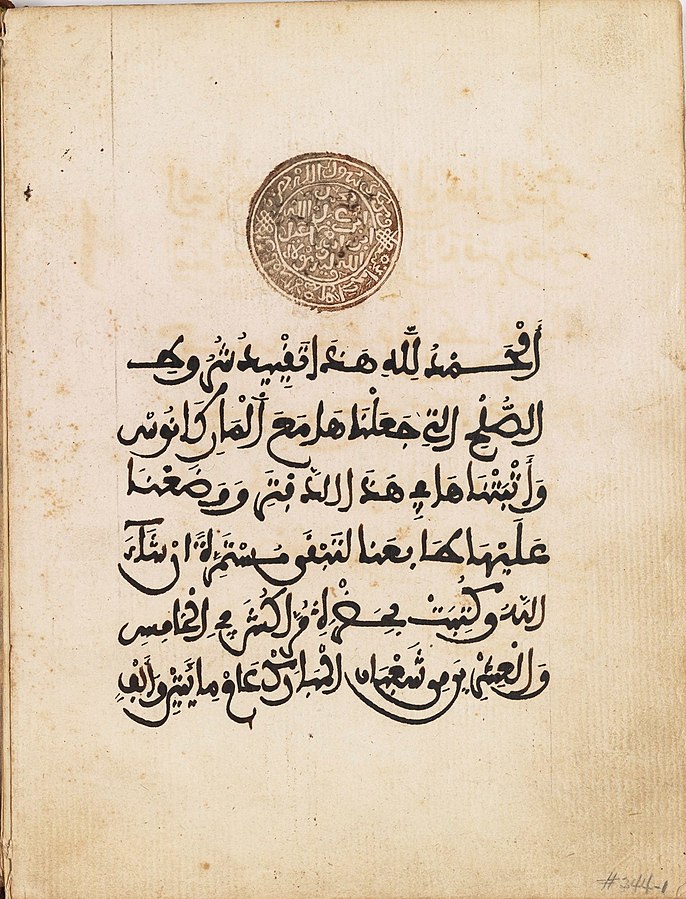 اَلْحَمْدُ لِلَّهِ هَذَا تَقْيِيدُ شُرُوطِ
الصُّلْحِ الَّتِي جَعَلْنَاهَا مَعَ الْمَارِكَانُوسْ
وَأَثْبَتْنَاهَا فِي هَذَا الدَّفْتَرِ وَوَضَعْنَا
عَلَيْهَا طَابِعَنَا لِتَبْقَى مُسْتَمِرَّةً إِنْ شَاءَ
اللَّهُ وَكُتِبَتْ بِحَضْرَةِ مُرَّاكُشَ فِي الْخَامِسِ
وَالْعِشْرِينَ مِنْ شَعْبَانَ الْمُبَارَكِ عَامَ مِائَتَيْنِ وَأَلْفٍ
#344-1